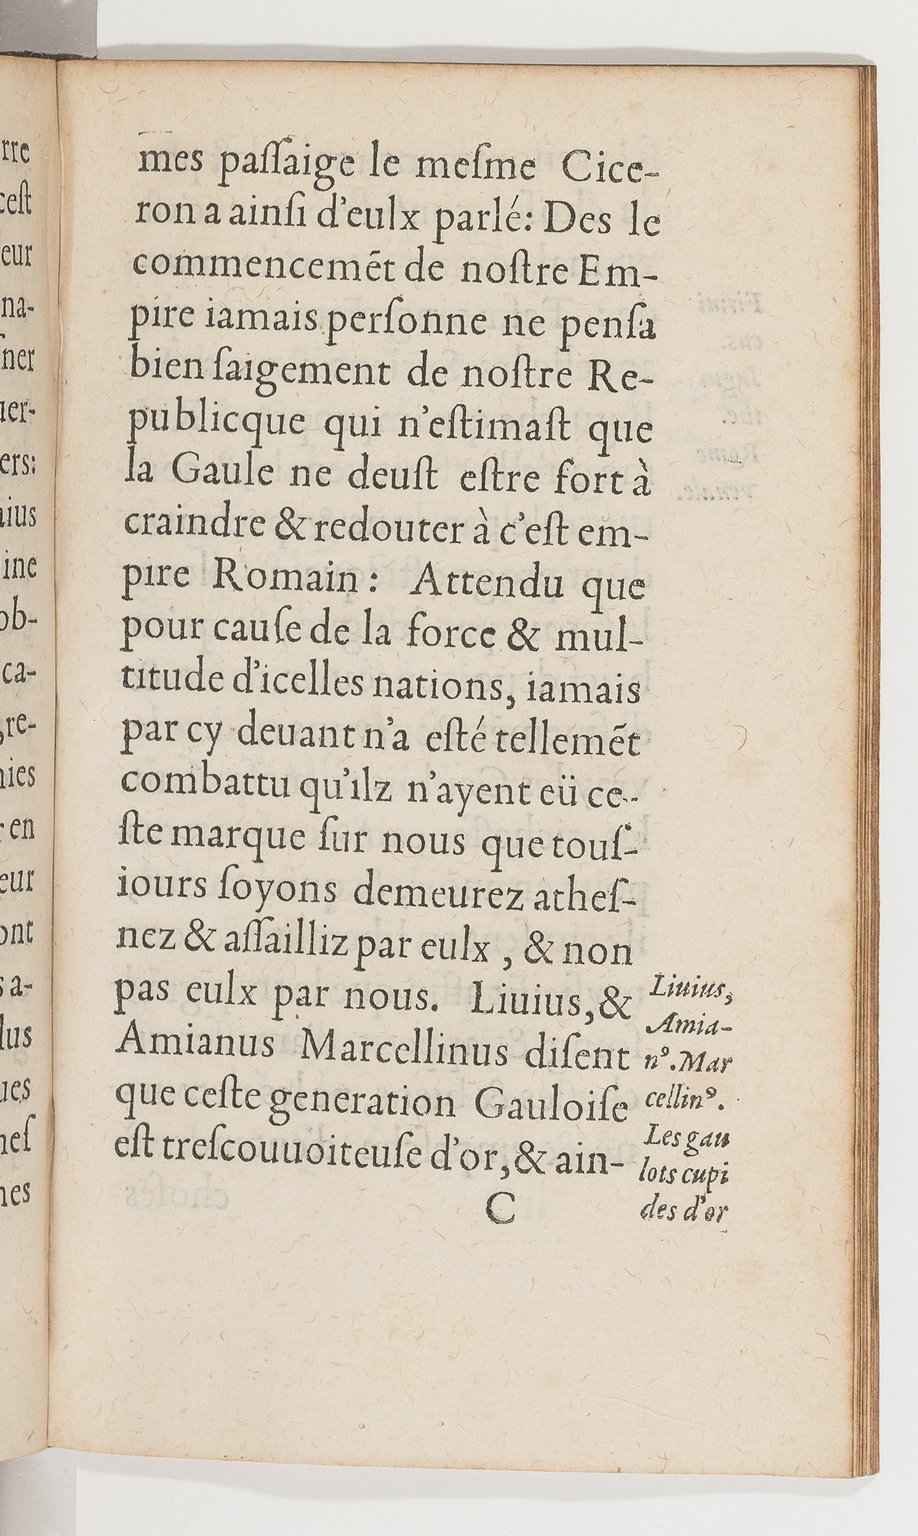 mes paſſaige le meſme Cice-
ron a ainſi d'eulx parlé: Des le
commencemẽt de noſtre Em-
pire iamais perſonne ne penſa
bien ſaigement de noſtre Re-
publicque qui n'eſtimaſt que
la Gaule ne deuſt eſtre fort à
craindre & redouter à c'eſt em-
pire Romain : Attendu que
pour cauſe de la force & mul-
titude d'icelles nations, iamais
par cy deuant n'a eſté tellemẽt
combattu qu'ilz n'ayent eü ce-
ſte marque ſur nous que touſ-
iours ſoyons demeurez atheſ-
nez & aſſailliz par eulx , & non
pas eulx par nous. Liuius, &
Amianus Marcellinus diſent
que ceſte generation Gauloiſe
eſt treſcouuoiteuſe d'or, & ain-
C
Liuius,
Amia-
nꝰ. Mar
cellinꝰ.
Les gau
lots cupi
des d'or
rre
ceſt
eur
na-
ſner
uer-
ers:
aius
ine
ob-
ca-
,re-
nies
r en
eur
ont
s a-
lus
ues
neſ
nes